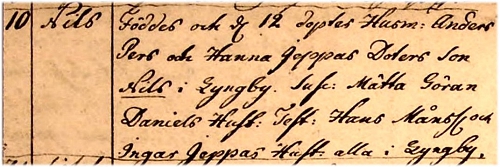 10 Nils Föddes och d. 12 döptes Husm: Anders
Pers och Hanna Jeppas Doters Son
Nils i Lyngby. Susc: Mätta Göran
Daniels Hust: Test: Hans Månss. och
Ingar Jeppas Hust. alla i Lyngby.